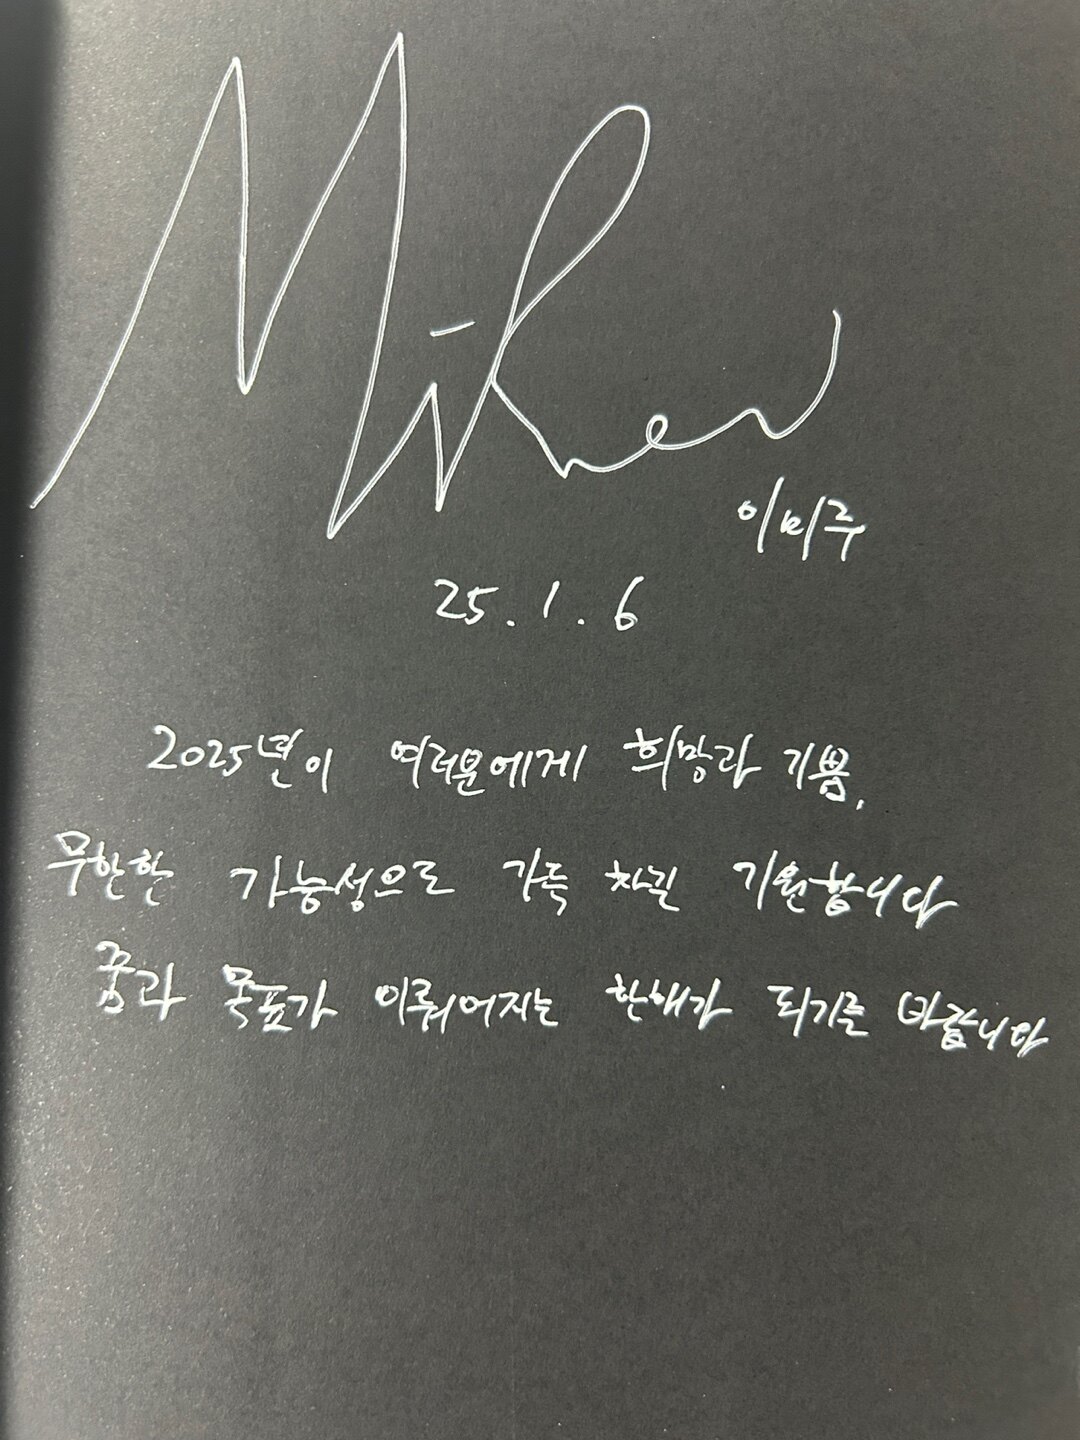 이미주
25.1.6
2025년이 여러분에게 희망과 기쁨,
무한한 가능성으로 가득 차길 기원합니다
꿈과 목표가 이뤄어지는 한해가 되기를 바랍니다